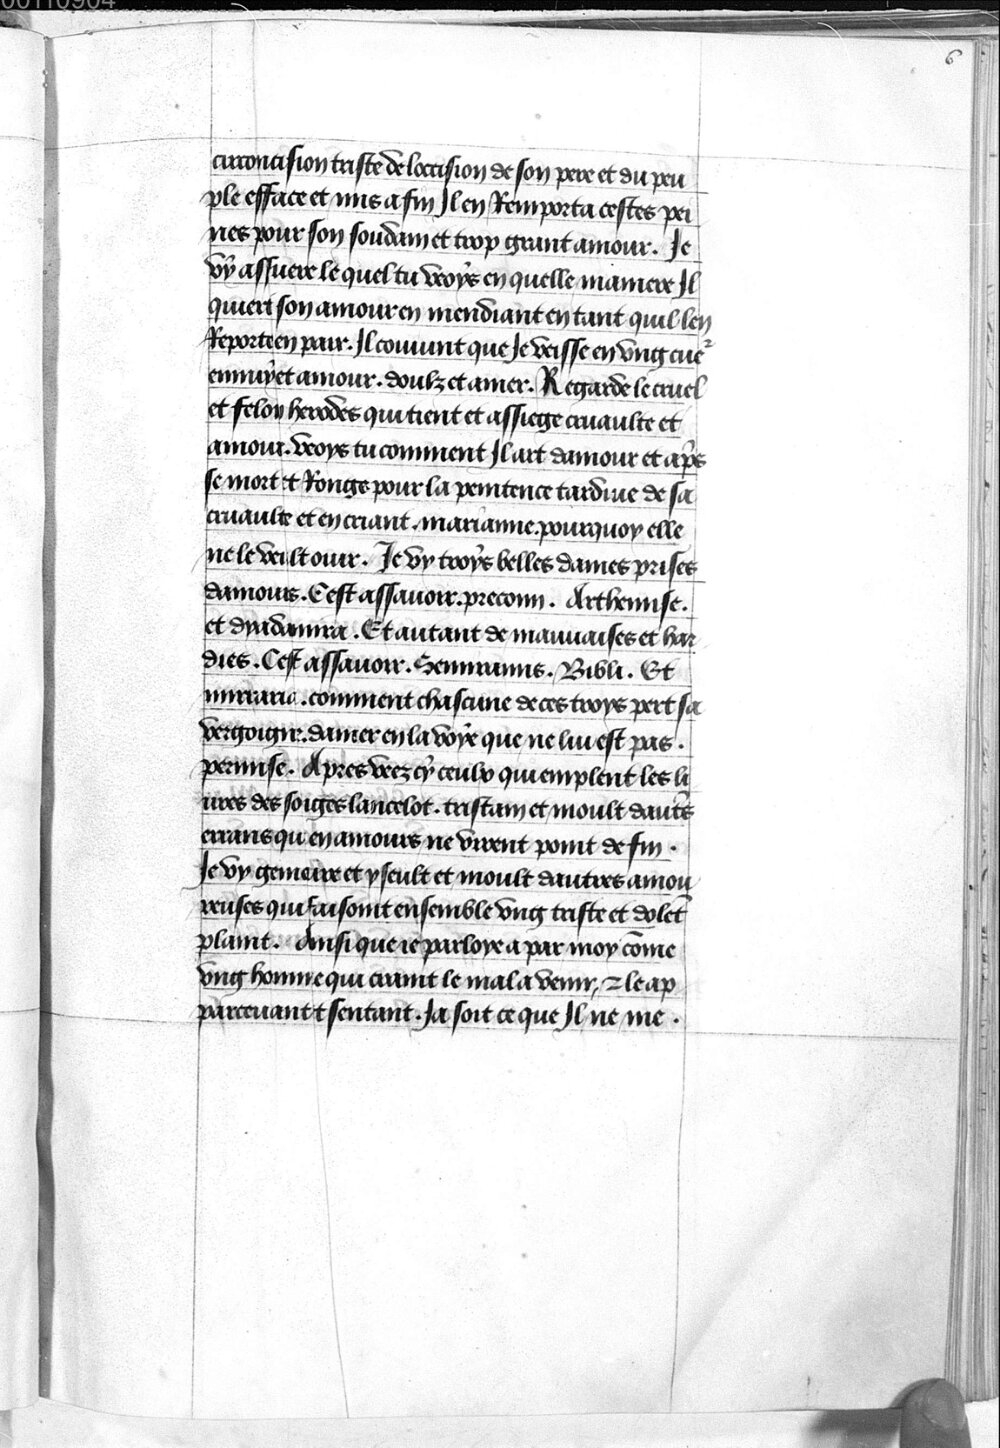 00110904
6
circoncision triste de loccision de son pere et du peu
ple efface et mis a fin Il en Remporta cestes pei
nes pour son soudain et trop grant amour. Je
vy assuere le quel tu veoys en quelle maniere Il
quiert son amour en mendiant en tant quil len
Reporte en paix. Il couuint que Je veisse en vng cue²
ennuy et amour. doulz et amer. Regarde le cruel
et felon herodes qui tient et assiege cruaulte et
amour. veoys tu comment Il art damour et ap̃s
se mort et Ronge pour la penitence tardiue de sa
cruaulte et en criant. marianne. pourquoy elle
ne le veult ouir. Je vy troys belles dames prises
damours. Cest assauoir. Arthemise.
et dyadamira. Et autant de mauuaises et har
dies. Cest assauoir. Semiramis. Bibli. Et
mirraria. comment chascune de ces troys pert sa
vergoigne. damer en la voye que ne lui est pas.
permise. Apres veez cy ceulx qui emplent les li
ures des songes lancelot. tristam et moult daut̃s
errans qu en amours ne virent point de fin.
Je vy geneure et yseult et moult dautres amou
reuses qui faisoint ensemble vng triste et dolẽt
plaint. Ainsi que ie parloye a par moy cõme
vng homme qui craint le mal a venir, et le ap
parceuant et sentant. Ja soit ce que Il ne me.